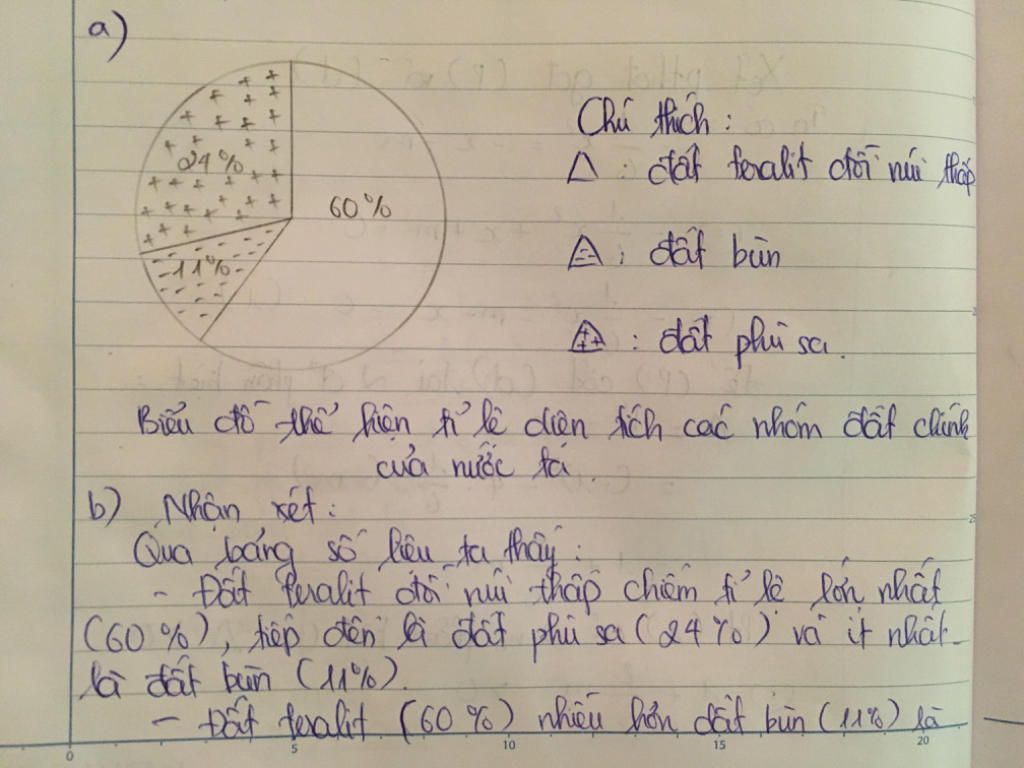 a)
24%
60%
11%
Chú thích:
: đất feralit đồi núi thấp
: đất bùn
: đất phù sa.
Biểu đồ thể hiện tỉ lệ diện tích các nhóm đất chính
của nước ta
b) Nhận xét:
Qua bảng số liệu ta thấy:
- Đất feralit đồi núi thấp chiếm tỉ lệ lớn nhất
(60%), tiếp đến là đất phù sa (24%) và ít nhất
là đất bùn (11%).
- Đất feralit (60%) nhiều hơn đất bùn (11%) là
0 5 10 15 20